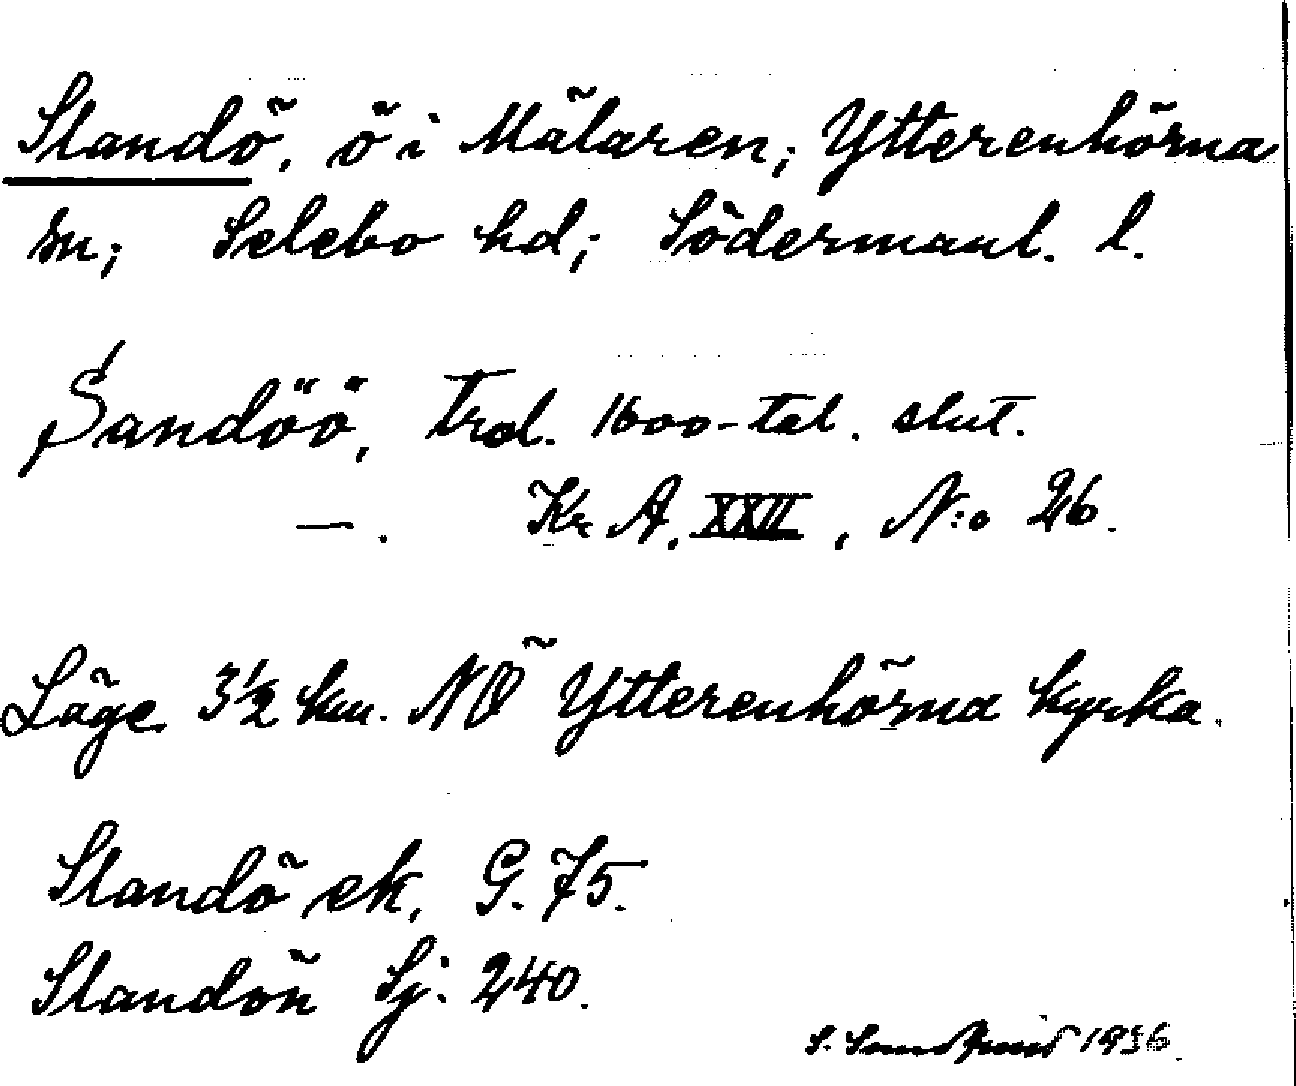 Slandö, ö i Mälaren; Ytterenhörna
sn; Selebo hd; Södermanl. l.
Sandöö, Trol. 1600-tal. slut.
—. Kr A, XXII, N:o 26.
Läge 3½ km. NÖ Ytterenhörna kyrka.
Slandö ek. G. 75.
Slandön Sj. 240.
S. 1936.